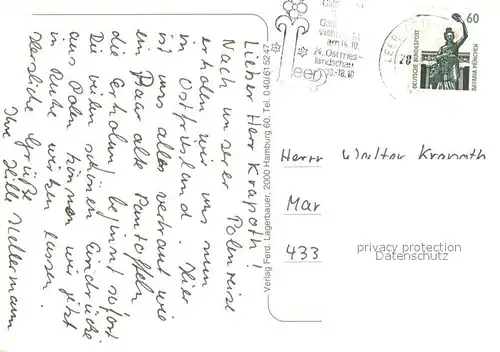 Lieber Herr Krapoth!
Nach unserer Polenreise
erholen wir uns nun
in Ostfriesland. Hier
ist uns alles vertraut wie
ein Paar alte Pantoffeln
die Erholung beginnt sofort
Die vielen schönen Eindrücke
aus Polen können wir jetzt
in Ruhe wirken lassen.
Herzliche Grüße
Ihre Hille
Verlag Ferd. Lagerbauer, 2000 Hamburg 60, Tel. 040/61 52 47
Gal
viehm
am 14.10.
24. Ostfries-
landschau
10.-18.10
leer
LEER
60
DEUTSCHE BUNDESPOST
BAVARIA MÜNCHEN
Herrn Walter Krapoth
Mar
433
privacy protection
Datenschutz